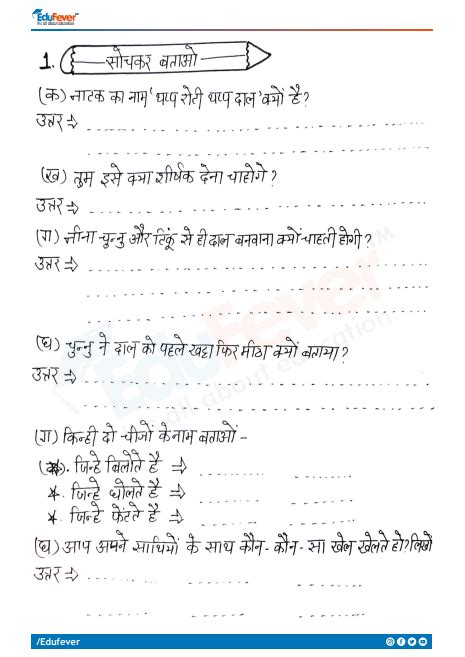 EduFever
1. सोचकर बताओ
(क) नाटक का नाम 'थप्प रोटी थप्प दाल' क्यों है?
उत्तर ⇒
(ख) तुम इसे क्या शीर्षक देना चाहोगे?
उत्तर ⇒
(ग) नीना चुन्नु और टिंकू से ही दाल बनवाना क्यों चाहती होगी?
उत्तर ⇒
EduFever™
all about education
(घ) चुन्नु ने दाल को पहले खट्टा फिर मीठा क्यों बताया?
उत्तर ⇒
(ग) किन्ही दो चीजों के नाम बताओं -
जिन्हे बिलोते है ⇒
*. जिन्हे घोलते है ⇒
*. जिन्हे फेंटते है ⇒
(घ) आप अपने साथियों के साथ कौन-कौन-सा खेल खेलते हो? लिखों
उत्तर ⇒
/Edufever